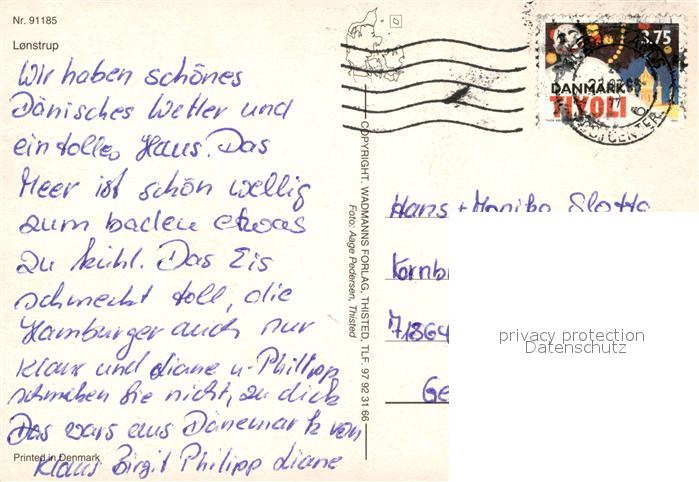 Nr. 91185
Lønstrup
Wir haben schönes
Dänisches Wetter und
ein tolles Haus. Das
Meer ist schön wellig
zum baden etwas
zu kühl. Das Eis
schmeckt toll, die
Hamburger auch nur
Klaus und Liane u. Phillipp
schmecken Sie nicht, zu dick
Das wars aus Dänemark von
Klaus Birgit Philipp Liane
Printed in Denmark
COPYRIGHT. WADMANNS FORLAG, THISTED, TLF. 97 92 31 66
Foto: Aage Pedersen, Thisted
3.75
DANMARK
TIVOLI
POSTCENTER
Hans + Monika Slotta
Kornb
71364
Ge
privacy protection
Datenschutz